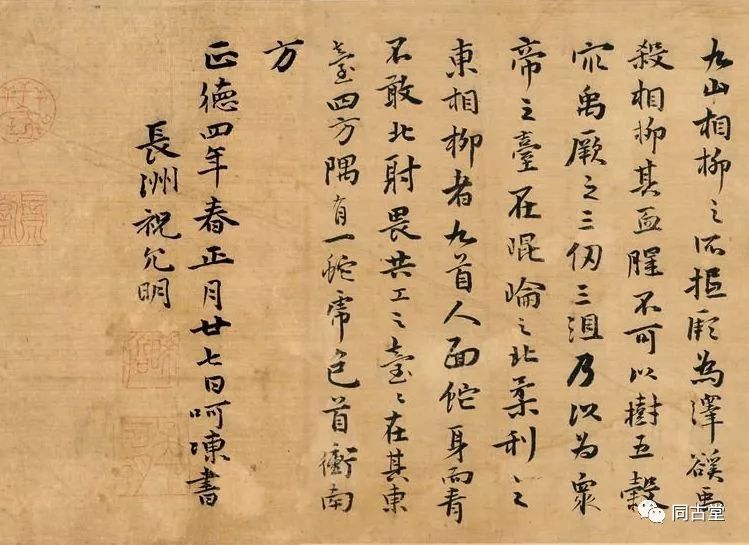 九山相柳之所抵厥為澤谿禹
殺相柳其血腥不可以樹五穀
禹厥之三仞三沮乃以為眾
帝之臺在崐崘之北柔利之
東相柳者九首人面蛇身而青
不敢北射畏共工之臺〻在其東
臺四方隅有一蛇虎色首衝南
方
正德四年春正月廿七日呵凍書
長洲祝允明
同古堂